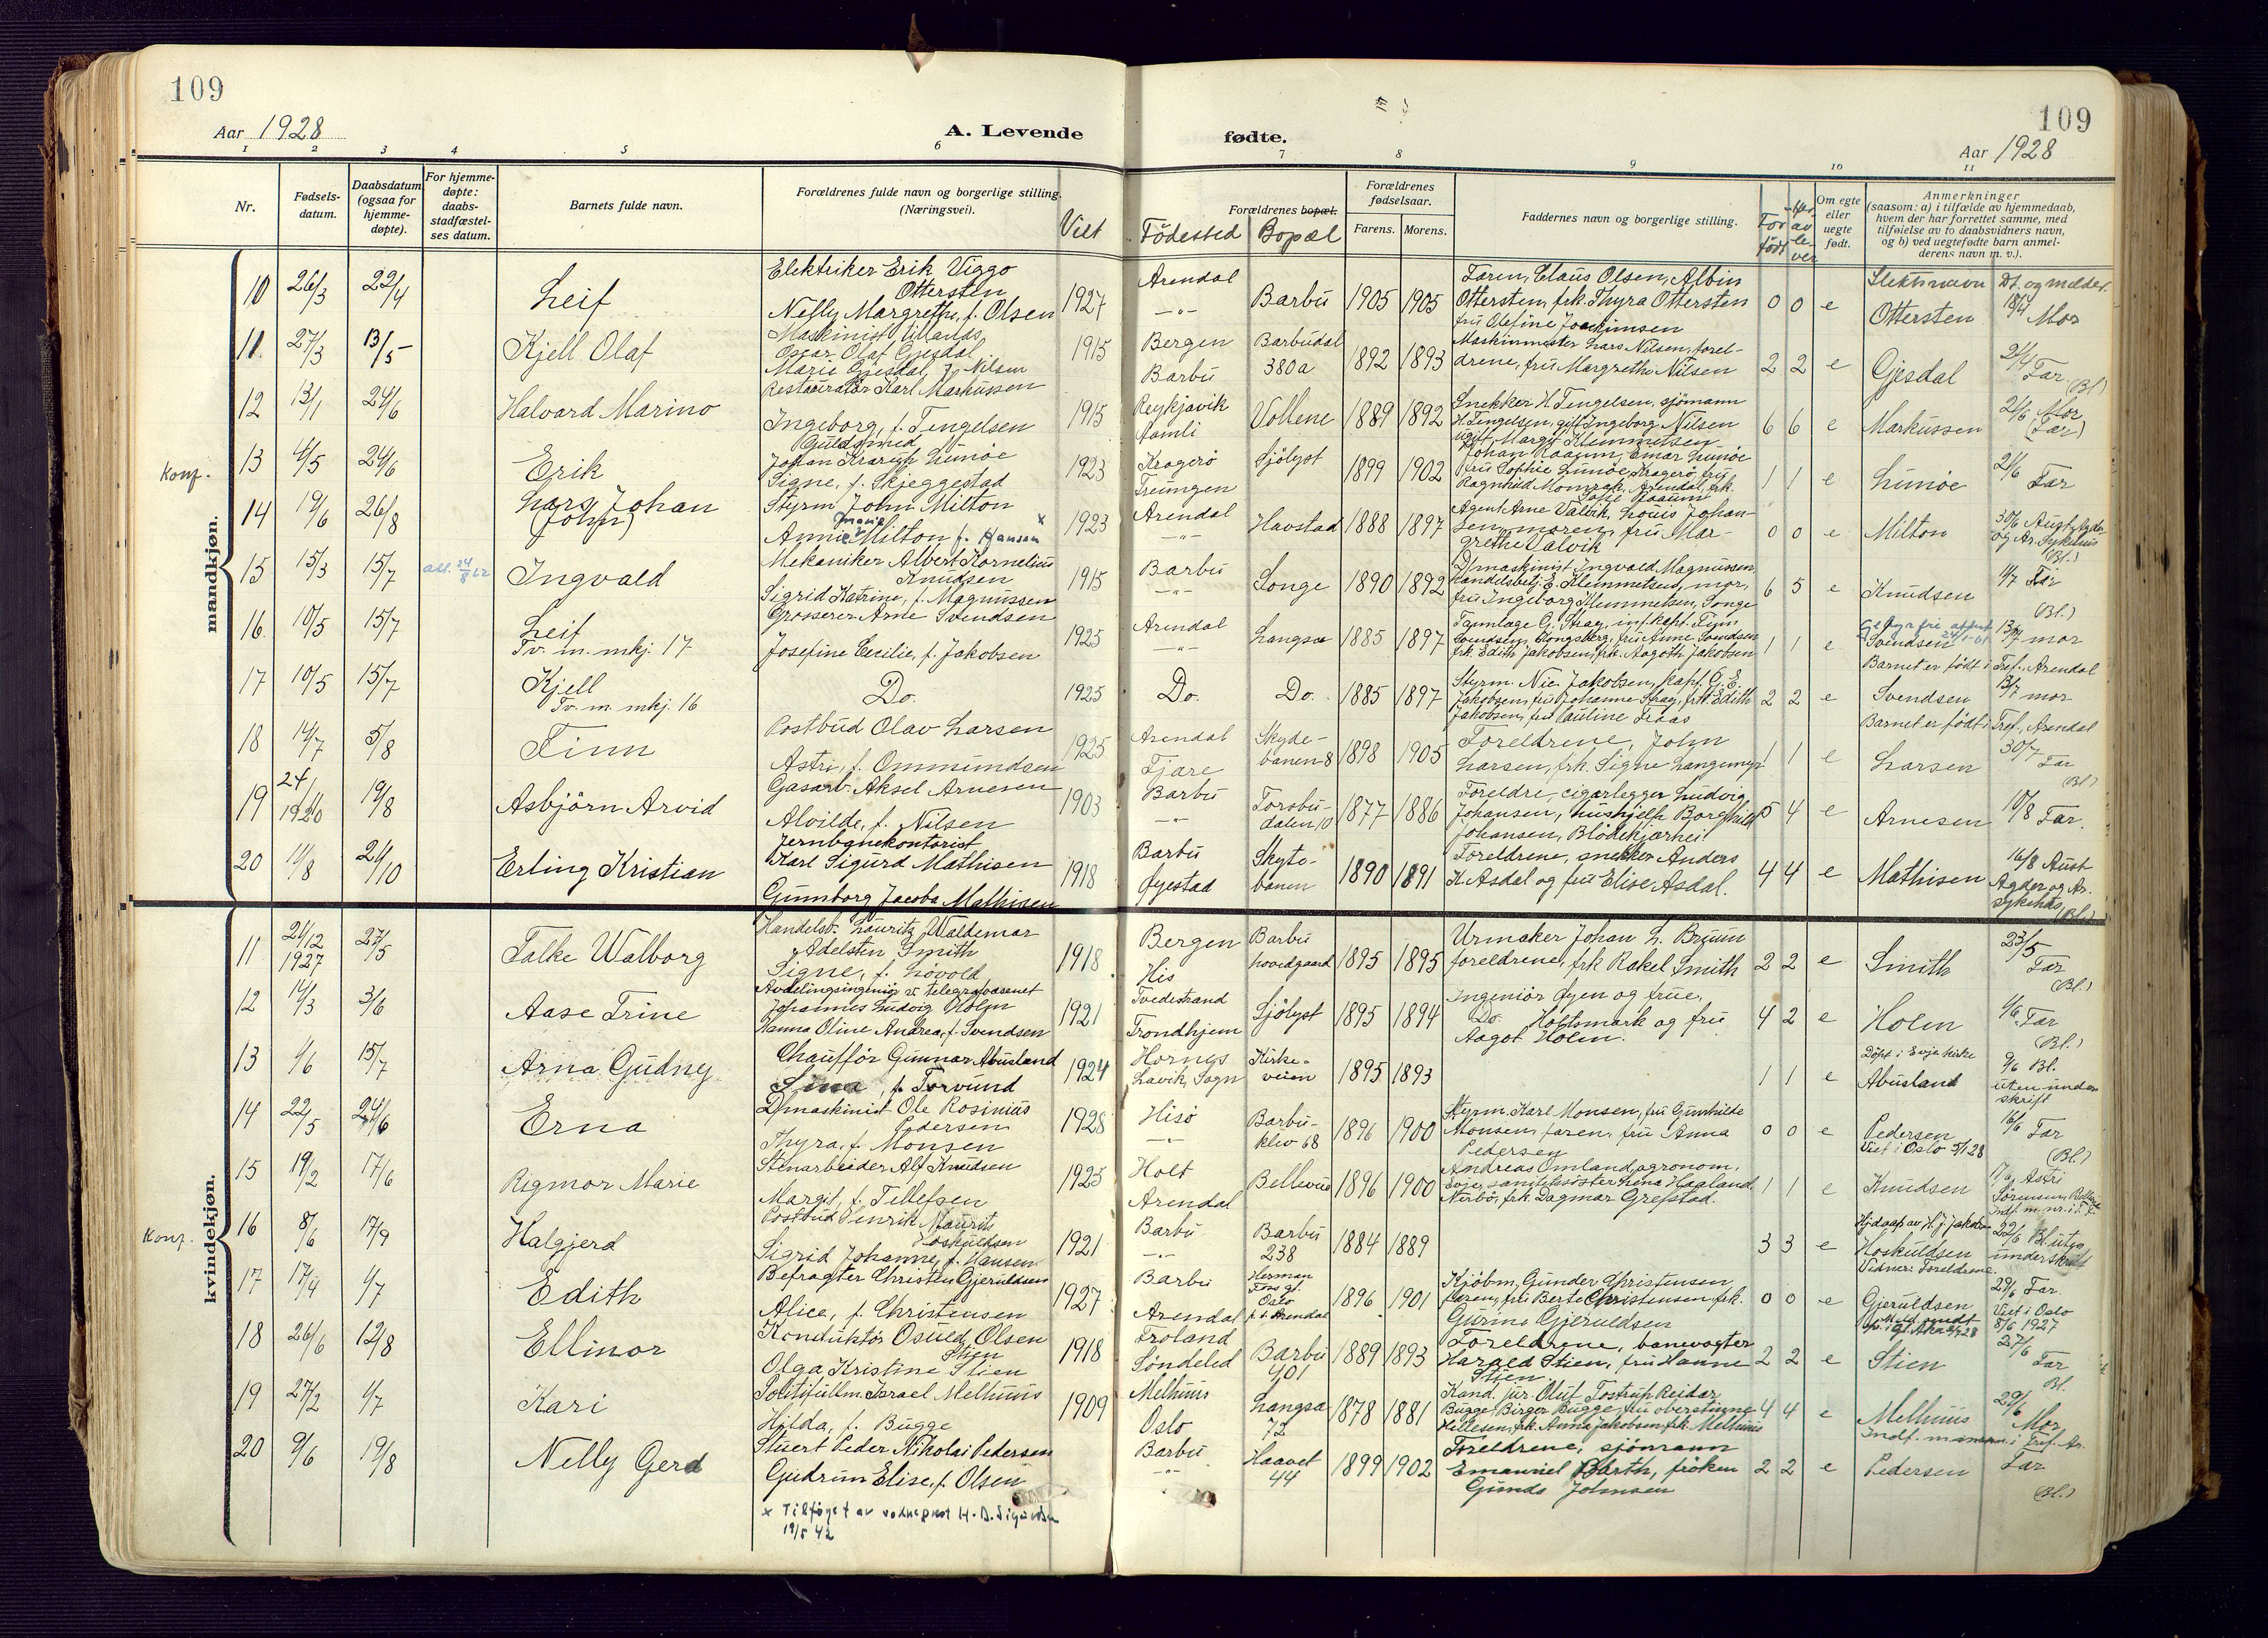 109
109
Aar 1928
A. Levende fødte.
Aar 1928
1 2 3 4 5 6 7 8 9 10 11
Nr.
Fødsels-
datum.
Daabsdatum
(ogsaa for
hjemme-
døpte).
For hjemme-
døpte:
daabs-
stadfæstel-
ses datum.
Barnets fulde navn.
Forældrenes fulde navn og borgerlige stilling.
(Næringsvei).
Viet
Forældrenes bopæl.
Födested
Bopæl
Forældrenes
fødselsaar.
Farens. Morens.
Faddernes navn og borgerlige stilling.
Om egte
eller
uegte
født.
Anmerkninger
(saasom: a) i tilfælde av hjemmedaab,
hvem der har forrettet samme, med
tilføielse av to daabsvidners navn,
og b) ved uegtefødte barn anmel-
derens navn m. v.).
mandkjøn.
10 26/3 22/4 Leif
Elektriker Erik Viggo
Ottersten
Nelly Margrethe, f. Olsen
1927
Arendal
-"-
Barbu
1905 1905
Faren, Claus Olsen, Albin
Ottersten, frk. Thyra Ottersten
fru Olefine Joachimsen
0 0 e
Slektsnavn
Ottersten
Mor
11. 27/3 13/5 Kjell Olaf
Oscar Olaf Gjesdal
Marie Gjesdal, f. Nilsen
1915
Bergen
Barbu
Barbudal
380a
1892 1893
Maskinmester Lars Nilsen, forel-
drene, fru Margrethe Nilsen
2 2 e
Gjesdal
Far.
(Bl)
12 13/1 24/6 Halvard Marino
Restauratör Karl Markussen
Ingeborg, f. Tengelsen
1915
Reykjavik
Aamli
Vollene
1889 1892
Snekker H. Tengelsen, sjömann
H. Tengelsen, gift Ingeborg Nilsen
ugift Margit Klemmetsen
6 6 e
Markussen
21/6 Mor
(Far)
konf.
13 4/5 24/6 Erik
Guldsmed
Johan Krarup Lunöe
Signe, f. Skjeggestad
1923
Kragerö
Treungen
Sjölyst
1899 1902
Johan Raaum, Einar Lunöe
fru Sophie Lunöe, Kragerö, fru
1 1 e
Lunöe
21/6 Far
14 19/6 26/8 Lars Johan
(John)
Styrm John Milton
Annie Marie Milton f. Hansen x
1923
Arendal
-"-
Havstad
1888 1897
Agent Arne Valvik, Louis Johan-
sen, moren, fru Mar-
grethe Valvik
0 0 e
Milton
(Bl.)
15 15/3 15/7 Ingvald
Mekaniker Albert Kornelius
Knudsen
Sigrid Katrine, f. Magnussen
1915
Barbu
-"-
Songe
1890 1892
D/maskinist Ingvald Magnussen,
handelsbetj. E. Klemmetsen, mor,
fru Ingeborg Klemmetsen, Songe
6 5 e
Knudsen
Far
(Bl.)
16. 10/5 15/7 Leif
Tv. m. mkj. 17
Grosserer Arne Svendsen
Josefine Cecilie, f. Jakobsen
1925
Arendal
-"-
Langsæ
1885 1897
Svendsen, Kongsberg, fru Anne Svendsen
frk. Edith Jakobsen, frk. Aagoth Jakobsen
1 1 e
Svendsen
13/7 mor
Barnet er födt i Tref. Arendal
17 10/5 15/7 Kjell
Tv. m. mkj. 16
Do.
1925
Do.
Do.
1885 1897
Styrm. Nic. Jakobsen, kapt. G. E.
Jakobsen, fru Johanne Stray, frk. Edith
Jakobsen, fru Pauline Traas
2 2 e
Svendsen
13/7 mor
Barnet er födt i Tref. Arendal
18 14/7 5/8 Finn
Postbud Olav Larsen
Astri, f. Ommundsen
1925
Arendal
Fjære
Skyde-
banen 8
1898 1905
Foreldrene, John
Larsen, frk. Signe Langemyr
1 1 e
Larsen
30/7 Far
(Bl)
19 24/11 1926 19/8 Asbjörn Arvid
Gasarb. Aksel Arnesen
Alvilde, f. Nilsen
1903
Barbu
-"-
Torsbu-
dalen 10
1877 1886
Foreldre, cigarlegger Ludvig
Johansen, hushjelp Borghild
Johansen, Blödekjærhei
5 4 e
Arnesen
10/8 Far.
20 11/8 21/10 Erling Kristian
Jernbanekontorist
Karl Sigurd Mathisen
Gunnborg Jacoba Mathisen
1918
Barbu
Øyestad
Skyte-
banen
1890 1891
Foreldrene, snekker Anders
K. Asdal og fru Elise Asdal.
4 4 e
Mathisen
16/8 Aust-
Agder og Ar.
sykehus
(Bl.)
kvindekjøn.
11 21/12 1927 27/5 Falke Walborg
Handelsb. Lauritz Waldemar
Adelsten Smith
Signe, f. Lövold
1918
Bergen
His
Barbu
hovedgaard
1895 1895
Urmaker Johan L. Bruun
foreldrene, frk Rakel Smith
2 2 e
Smith
23/5
Far
(Bl.)
12 14/3 3/6 Aase Trine
Avdelingsingeniör v. telegrafvæsenet
Johannes Ludvig Holm
Hanna Oline Andrea, f. Svendsen
1921
Tvedestrand
Trondhjem
Sjölyst
1895 1894
Ingeniör Øyen og frue,
Do. Holtsmark og fru
Aagot Holm.
4 2 e
Holm
Far
(Bl.)
13 1/6 15/7 Arna Gudny
Chaufför Gunnar Abusland
f. Torvund
1924
Hornes
Lavik, Sogn
Kirke-
veien
1895 1893
1 1 e
Döpt i Evje kirke
Abusland
9/6 Bl.
uten under
skrift
14 22/5 24/6 Erna
D/maskinist Ole Rosinius
Pedersen
Thyra, f. Monsen
1928
Hisö
-"-
Barbu-
kleiv 68
1896 1900
Styrm. Karl Monsen, fru Gunhilde
Monsen, faren, fru Anna
Pedersen
0 0 e
Pedersen
Viet i Oslo 5/1 28
16/6 Far
(Bl.)
15 19/2 17/6 Rigmor Marie
Stenarbeider Alf Knudsen
Margit, f. Tellefsen
1925
Holt
Arendal
Bellevue
1896 1900
Andreas Omland, agronom,
Evje, sanitetssöster Lena Haaland
Nerbö, frk. Dagmar Grefstad.
1 1 e
Knudsen
Astri
Sörensen,
Konf.
16 8/6 17/9 Halgjerd
Postbud Henrik Maurits
Hoskuldsen
Sigrid Johanne, f. Hansen
1921
Barbu
-"-
Barbu
238
1884 1889
3 3 e
Hjdaap av H. J. Jakobsen
Hoskuldsen
Vidner: Foreldrene.
22/6 Bl. uten
underskrift
17 17/4 1/7 Edith
Befragter Christen Gjeruldsen
Alice, f. Christensen
1927
Barbu
Arendal
Herman
Foss gt.
Oslo
p. t. Arendal
1896 1901
Kjöbm. Gunder Christensen
faren, fru Berte Christensen, frk.
Gurine Gjeruldsen
0 0 e
Gjeruldsen
29/6 Far.
Viet i Oslo
8/6 1927
18 26/6 12/8 Ellinor
Konduktör Osuld Olsen
Stien
Olga Kristine Stien
1918
Froland
Söndeled
Barbu
401
1889 1893
Foreldrene, banevogter
Harald Stien, fru Hanne
Stien.
2 2 e
Stien
27/6
Far
Bl.
19 27/2 1/7 Kari
Politifullm. Israel Melhuus
Hilda, f. Bugge
1909
Melhuus
Oslo
Langsæ
72
1878 1881
Kand. jur. Oluf Tostrup Reidar
Bugge, Birger Bugge, fru oberstinne
Hellesen, frk. Anna Jakobsen, frk. Melhuus
4 4 e
Melhuus
29/6
Mor
20 9/6 19/8 Nelly Gerd
Stuert Peder Nikolai Pedersen
Gudrun Elise, f. Olsen
1899 1902
Barbu
-"-
Haavet
44
Foreldrene, sjömann
Emanuel Barth, fröken
Gunda Johnsen
2 2 e
Pedersen
Far
(Bl.)
x Tilföiet av sokneprest H. D. Sigurdsen
19/5 42